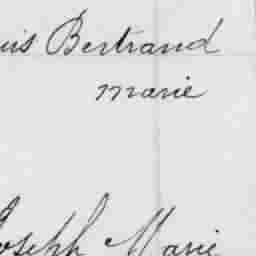 uis Bertrand
marie
Joseph Marie